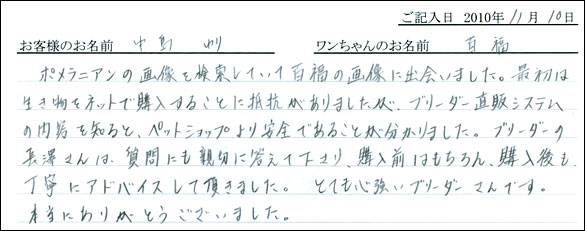 ご記入日 2010年 11月 10日
お客様のお名前 中島 ワンちゃんのお名前 百福
ポメラニアンの画像を検索していて百福の画像に出会いました。最初は
生き物をネットで購入することに抵抗がありましたが、ブリーダー直販システム
の内容を知ると、ペットショップより安全であることが分かりました。ブリーダーの
長澤さんは、質問にも親切に答えて下さり、購入前はもちろん、購入後も、
丁寧にアドバイスして頂きました。 とても心強いブリーダーさんです。
本当にありがとうございました。